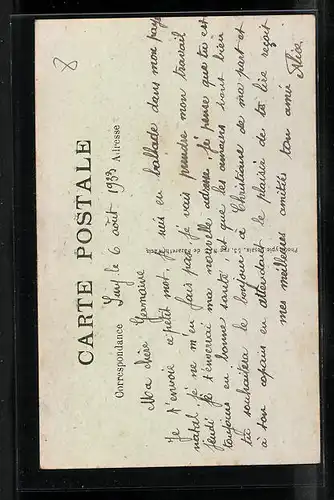 8
CARTE POSTALE
Correspondance Adresse
le 6 août 1933
Ma chère Germaine
Je t'envoie ce petit mot, je suis en ballade dans mon pays
natal je ne m'en fais pas. Je vais prendre mon travail
jeudi je t'enverrai ma nouvelle adresse, je pense que tu est
toujours en bonne santé et que les amours vont bien
tu souhaitera le bonjour à Christiane de ma part et
à ton copain en attendant le plaisir de te lire reçoit
mes meilleures amitiés ton amie
Alice